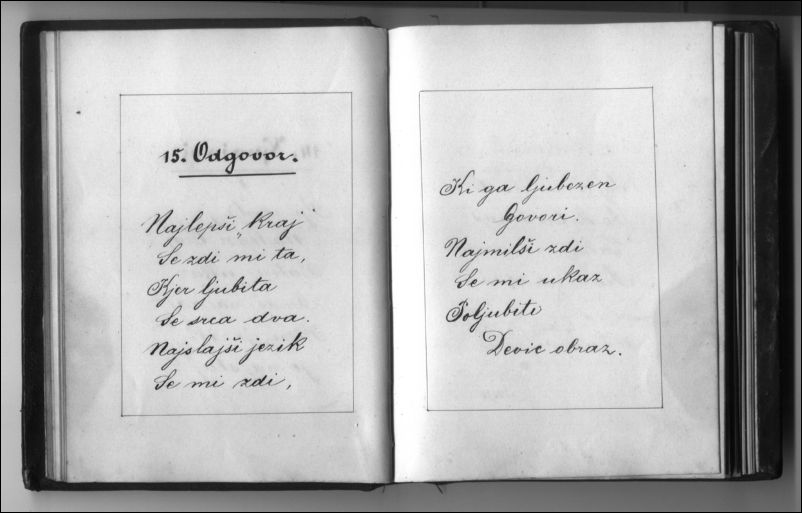 15. Odgovor.
Najlepši „kraj“
Se zdi mi ta,
Kjer ljubita
Se srca dva.
Najslajši jezik
Se mi zdi,
Ki ga ljubezen
Govori.
Najmilši zdi
Se mi ukaz
Poljubiti
Devic obraz.